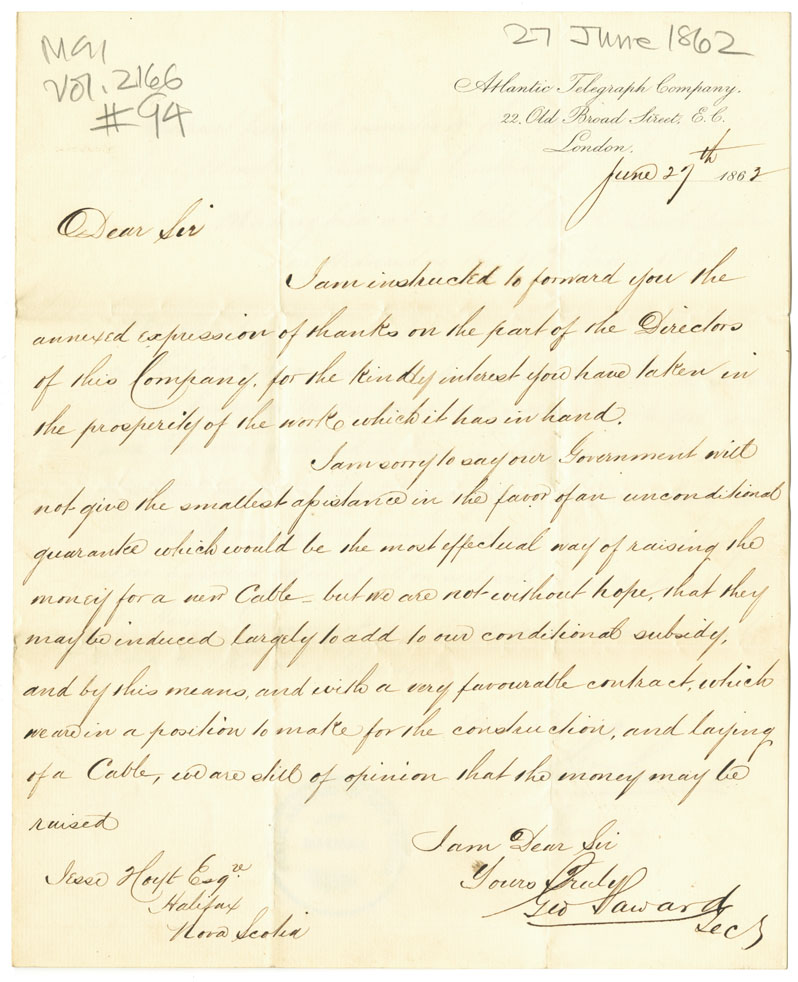 MG1
Vol. 2166
#94
27 June 1862
Atlantic Telegraph Company.
22, Old Broad Street, E.C.
London.
June 27th 1862
Dear Sir
I am instructed to forward you the
annexed expression of thanks on the part of the Directors
of this Company, for the kindly interest you have taken in
the prosperity of the work which it has in hand.
I am sorry to say our Government will
not give the smallest assistance in the favor of an unconditional
guarantee which would be the most effectual way of raising the
money for a new Cable – but we are not without hope, that they
may be induced largely to add to our conditional subsidy,
and by this means, and with a very favourable contract, which
we are in a position to make for the construction, and laying
of a Cable, we are still of opinion that the money may be
raised
I am Dear Sir
Yours Truly
Geo Saward
Secy
Jesse Hoyt Esqre.
Halifax
Nova Scotia